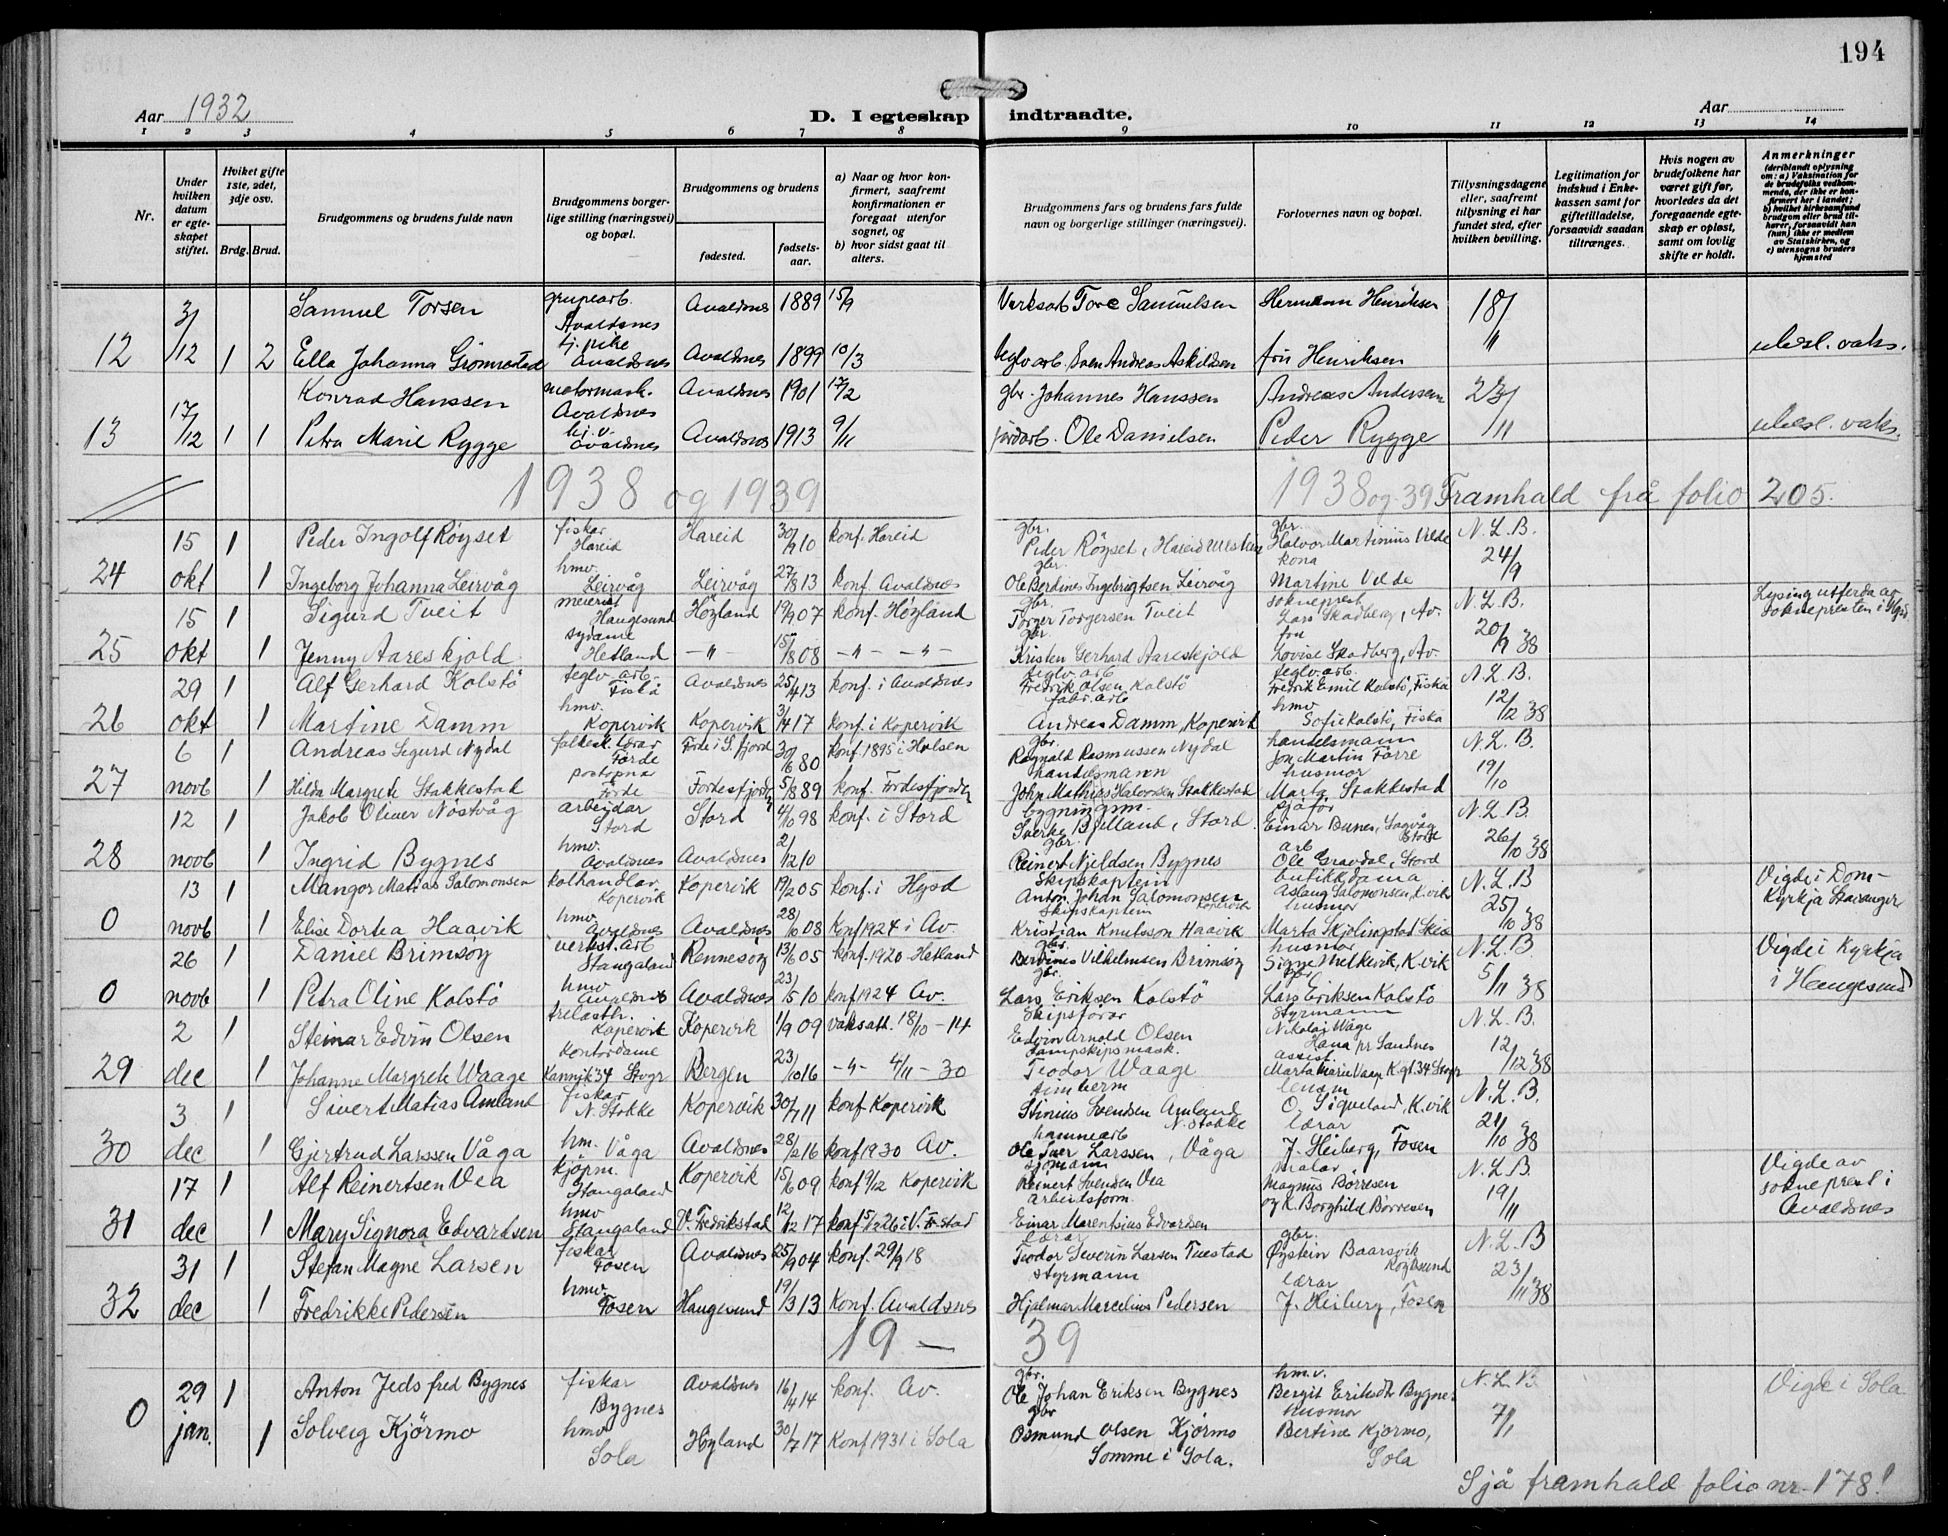 194
Aar 1932
D. I egteskap indtraadte.
Aar
1 2 3 4 5 6 7 8 9 10 11 12 13 14
Nr.
Under hvilken datum er egteskapet stiftet.
Hviket gifte 1ste, 2det, 3dje osv.
Brdg. Brud.
Brudgommens og brudens fulde navn
Brudgommens borgerlige stilling (næringsvei) og bopæl.
Brudgommens og brudens
fødested.
fødselsaar.
a) Naar og hvor konfirmert, saafremt konfirmationen er foregaat utenfor sognet, og
b) hvor sidst gaat til alters.
Brudgommens fars og brudens fars fulde navn og borgerlige stillinger (næringsvei).
Forlovernes navn og bopæl.
Tillysningsdagene eller, saafremt tillysning ei har fundet sted, efter hvilken bevilling.
Legitimation for indskud i Enkekassen samt for giftetilladelse, forsaavidt saadan tiltrænges.
Hvis nogen av brudefolkene har været gift før, hvorledes da det foregaaende egteskap er opløst, samt om lovlig skifte er holdt.
Anmerkninger
(deriblandt oplysning om: a) Vaksination for de brudefolks vedkommende, der ikke er konfirmert her i landet; b) hvilket kirkesamfund brudgom eller brud tilhører, forsaavidt han (hun) ikke er medlem av Statskirken, og c) utensogns bruders hjemsted
3/ Samuel Torsen grupearb. Avaldsnes Avaldsnes 1889 15/9 Verksarb Tore Samuelsen Hermann Henriksen 18/
12 /12 1 2 Ella Johanna Grønnestad tj. pike Avaldsnes Avaldsnes 1899 10/3 teglv arb. Sven Andreas Askildsen fru Henriksen 11 ubesl. vaks.
Konrad Hanssen motormask. Avaldsnes Avaldsnes 1901 17/2 gbr. Johannes Hanssen Andreas Andersen 23/
13 17/12 1 1 Petra Marie Rygge Avaldsnes Avaldsnes 1913 9/11 jordarb. Ole Danielsen Peder Rygge /11 ubesl. vaks.
1938 og 1939 1938 og 39 Framhald frå folio 205.
15 1 Peder Ingolf Røyset fiskar Hareid Hareid 30/9 10 konf. Hareid gbr. Peder Røyset, Hareid gbr. Halvor Martinius Velde N. L. B.
24 okt 1 Ingeborg Johanna Leirvåg hmv. Leirvåg Leirvåg 27/8 13 konf. Avaldsnes gbr. Ole Berdines Ingebrigtsen Leirvåg kona Martine Velde 24/9
15 1 Sigurd Tveit meierist Haugesund Høyland 19/9 07 konf. Høyland gbr. Torger Torgersen Tveit sokneprest Lars Skadberg, Av. N. L. B. Lysing utferda av soknepresten i Hgsd
25 okt 1 Jenny Aareskjold sydame Hetland — " — 15/8 08 — " — — " — gbr. Kristen Gerhard Aareskjold fru Lovise Skadberg, Av. 20/9 38
29 1 Alf Gerhard Kolstø teglv. arb. Fiskå Avaldsnes 25/4 13 konf. i Avaldsnes teglv. arb. Fredrik Olsen Kolstø teglv. arb. Fredrik Emil Kolstø, Fiskå N. L. B.
26 okt 1 Martine Damm hmv. Kopervik Kopervik 3/4 17 konf. i Kopervik fabr. arb Andreas Damm, Kopervik hmv Sofie Kolstø, Fiskå 12/12 38
6 1 Andreas Sigurd Nydal folkesk. lærar Førde Førde i S. fjord 30/6 80 konf. 1895 i Holsen gbr. Rognald Rasmussen Nydal handelsmann Jon Martin Førre N. L. B.
27 novb 1 Hilda Margrete Stakkestad postopnar Førde Førdesfjorden 5/8 89 konf. Førdesfjorden handelsmann John Mathias Halvorsen Stakkestad husmor Marta Stakkestad 19/10
12 1 Jakob Oliver Nøstvåg arbeidar Stord Stord 4/6 98 konf. i Stord bygningsm. Sverke Bjelland, Stord sjåfør Einar Bunes, Sagvåg Stord N. L. B.
28 novb 1 Ingrid Bygnes hmv. Avaldsnes Avaldsnes 2/12 10 gbr. Reinert Njeldsen Bygnes arb Ole Gravdal, Stord 26/10 38
13 1 Mangor Matias Salomonsen kolhandlar Kopervik Kopervik 19/2 05 konf. i Hgsd Skipskaptein Anton Johan Salomonsen Kopervik butikkdama Aslaug Salomonsen, K.vik N. L. B Vigde i Domkyrkja Stavanger
0 novb 1 Elise Dortea Haavik hmv. Avaldsnes Avaldsnes 28/6 08 Konf 1924 i Av. Skipskaptein Kristian Knutsson Haavik husmor Marta Skjølingstad 25/10 38
26 1 Daniel Brimsøy verkst. arb Stangaland Rennesøy 13/6 05 konf. 1920 Hetland gbr. Berdines Vilhelmsen Brimsøy husmor Signe Melkevik, K.vik N. L. B. Vigde i Kyrkja i Haugesund
0 novb 1 Petra Oline Kolstø hmv Avaldsnes Avaldsnes 23/5 10 konf 1924 Av. gbr. Lars Eriksen Kolstø gbr Lars Eriksen Kolstø 5/11 38
2 1 Steinar Edvin Olsen Kopervik Kopervik 1/9 09 vaksatt. 18/10 - 14 Skipsførar Edvin Arnold Olsen Styrmann Nikolai Wåge Hana pr Sandnes N. L. B.
29 dec 1 Johanne Margrete Waage Kontordame Kannik 34 Stvgr Bergen 23/10 16 — " — 4/11 - 30 Dampskipsmask. Teodor Waage assist. Marta Marie K.gt. 34 Stvgr 12/12 38
3 1 Sivert Matias Amland fiskar N. Stokke Kopervik 30/7 11 konf Kopervik Stinius Svendsen Amland N. Stokke lensm O. Siqveland, K.vik N. L. B.
30 dec 1 Gjertrud Larssen Våga hm. Våga Avaldsnes 28/2 16 konf 1930 Av. hamnearb Ole Iver Larssen, Våga lærar J. Heiberg, Fosen 21/10 38
17 1 Alf Reinertsen Vea kjøpm. Stangaland Kopervik 15/6 09 konf 9/12 Kopervik sjømann Reinert Svendsen Vea malar Magnus Børresen N. L. B Vigde av sokneprest i Avaldsnes
31 dec 1 Mary Signora Edvardsen hmv Stangaland V. Fredrikstad 12/12 17 konf 5/12 26 i V. Fr.stad arbeidsform. Einar Marentsius Edvardsen og K. Borghild Børresen 19/11
31 1 Stefan Magne Larsen fiskar Fosen Avaldsnes 25/9 04 konf. 29/9 18 lærar Teodor Severin Larsen Tuestad gbr. Øystein Baarsvik Røyksund N. L. B
32 dec 1 Fredrikke Pedersen hmv. Fosen Haugesund 19/3 13 Konf. Avaldsnes styrmann Hjalmar Marcelius Pedersen lærar J. Heiberg, Fosen 23/11 38
19 — 39
29 1 Anton Jedsfred Bygnes fiskar Bygnes Avaldsnes 16/4 14 konf. Av. gbr. Ole Johan Eriksen Bygnes hm.v. Bergit Bygnes N. L. B Vigde i Sola
0 jan. 1 Solveig Kjørmo hmv Sola Høyland 30/7 17 Konf 1931 i Sola gbr Osmund Olsen Kjørmo Somme i Sola. husmor Bertine Kjørmo, Sola 7/1
Sjå framhald folio nr. 178!